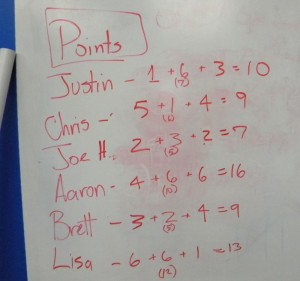 Points
Justin - 1 + 6 + 3 = 10
(7)
Chris - 5 + 1 + 4 = 9
(6)
Joe H. 2 + 3 + 2 = 7
(5)
Aaron - 4 + 6 + 6 = 16
(10)
Brett - 3 + 2 + 4 = 9
(5)
Lisa - 6 + 6 + 1 = 13
(12)